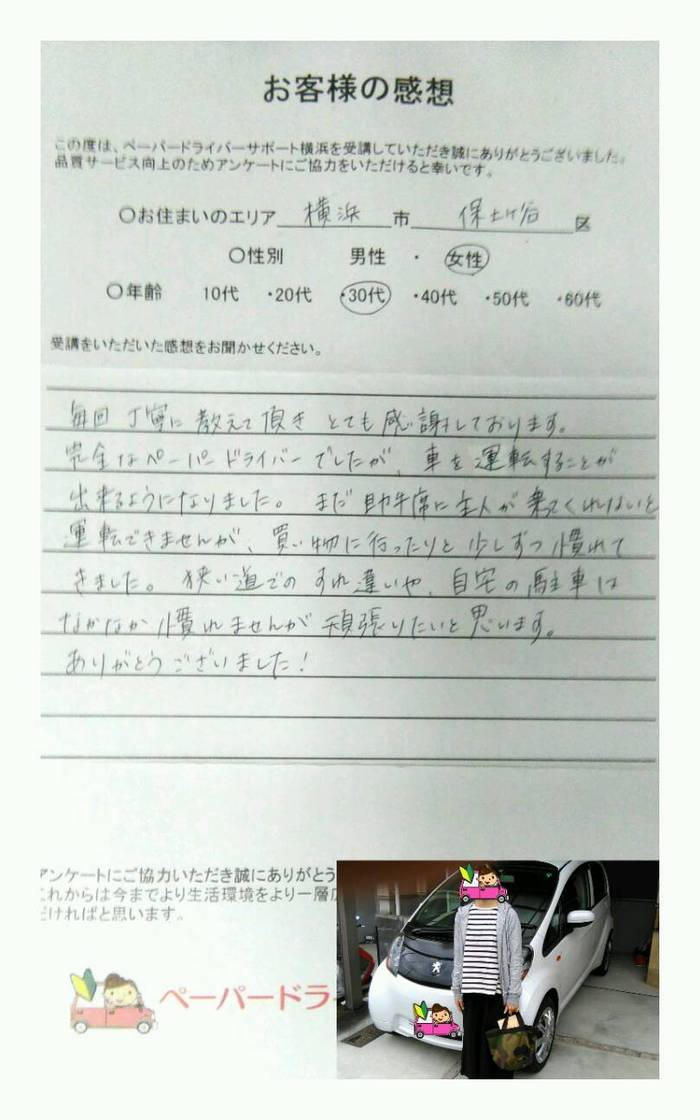 お客様の感想
この度は、ペーパードライバーサポート横浜を受講していただき誠にありがとうございました。
品質サービス向上のためアンケートにご協力をいただけると幸いです。
〇お住まいのエリア 横浜 市 保土ヶ谷 区
〇性別 男性 ・ 女性
〇年齢 10代 ・20代 ・30代 ・40代 ・50代 ・60代
受講をいただいた感想をお聞かせください。
毎回 丁寧に 教えて頂き とても 感謝しております。
完全なペーパードライバーでしたが、車を運転することが
出来るようになりました。まだ助手席に主人が乗ってくれないと
運転できませんが、買い物に行ったりと少しずつ慣れて
きました。狭い道でのすれ違いや、自宅の駐車は
なかなか慣れませんが頑張りたいと思います。
ありがとうございました!
アンケートにご協力いただき誠にありがとう
これからは今までより生活環境をより一層広
だければと思います。
ペーパードラ